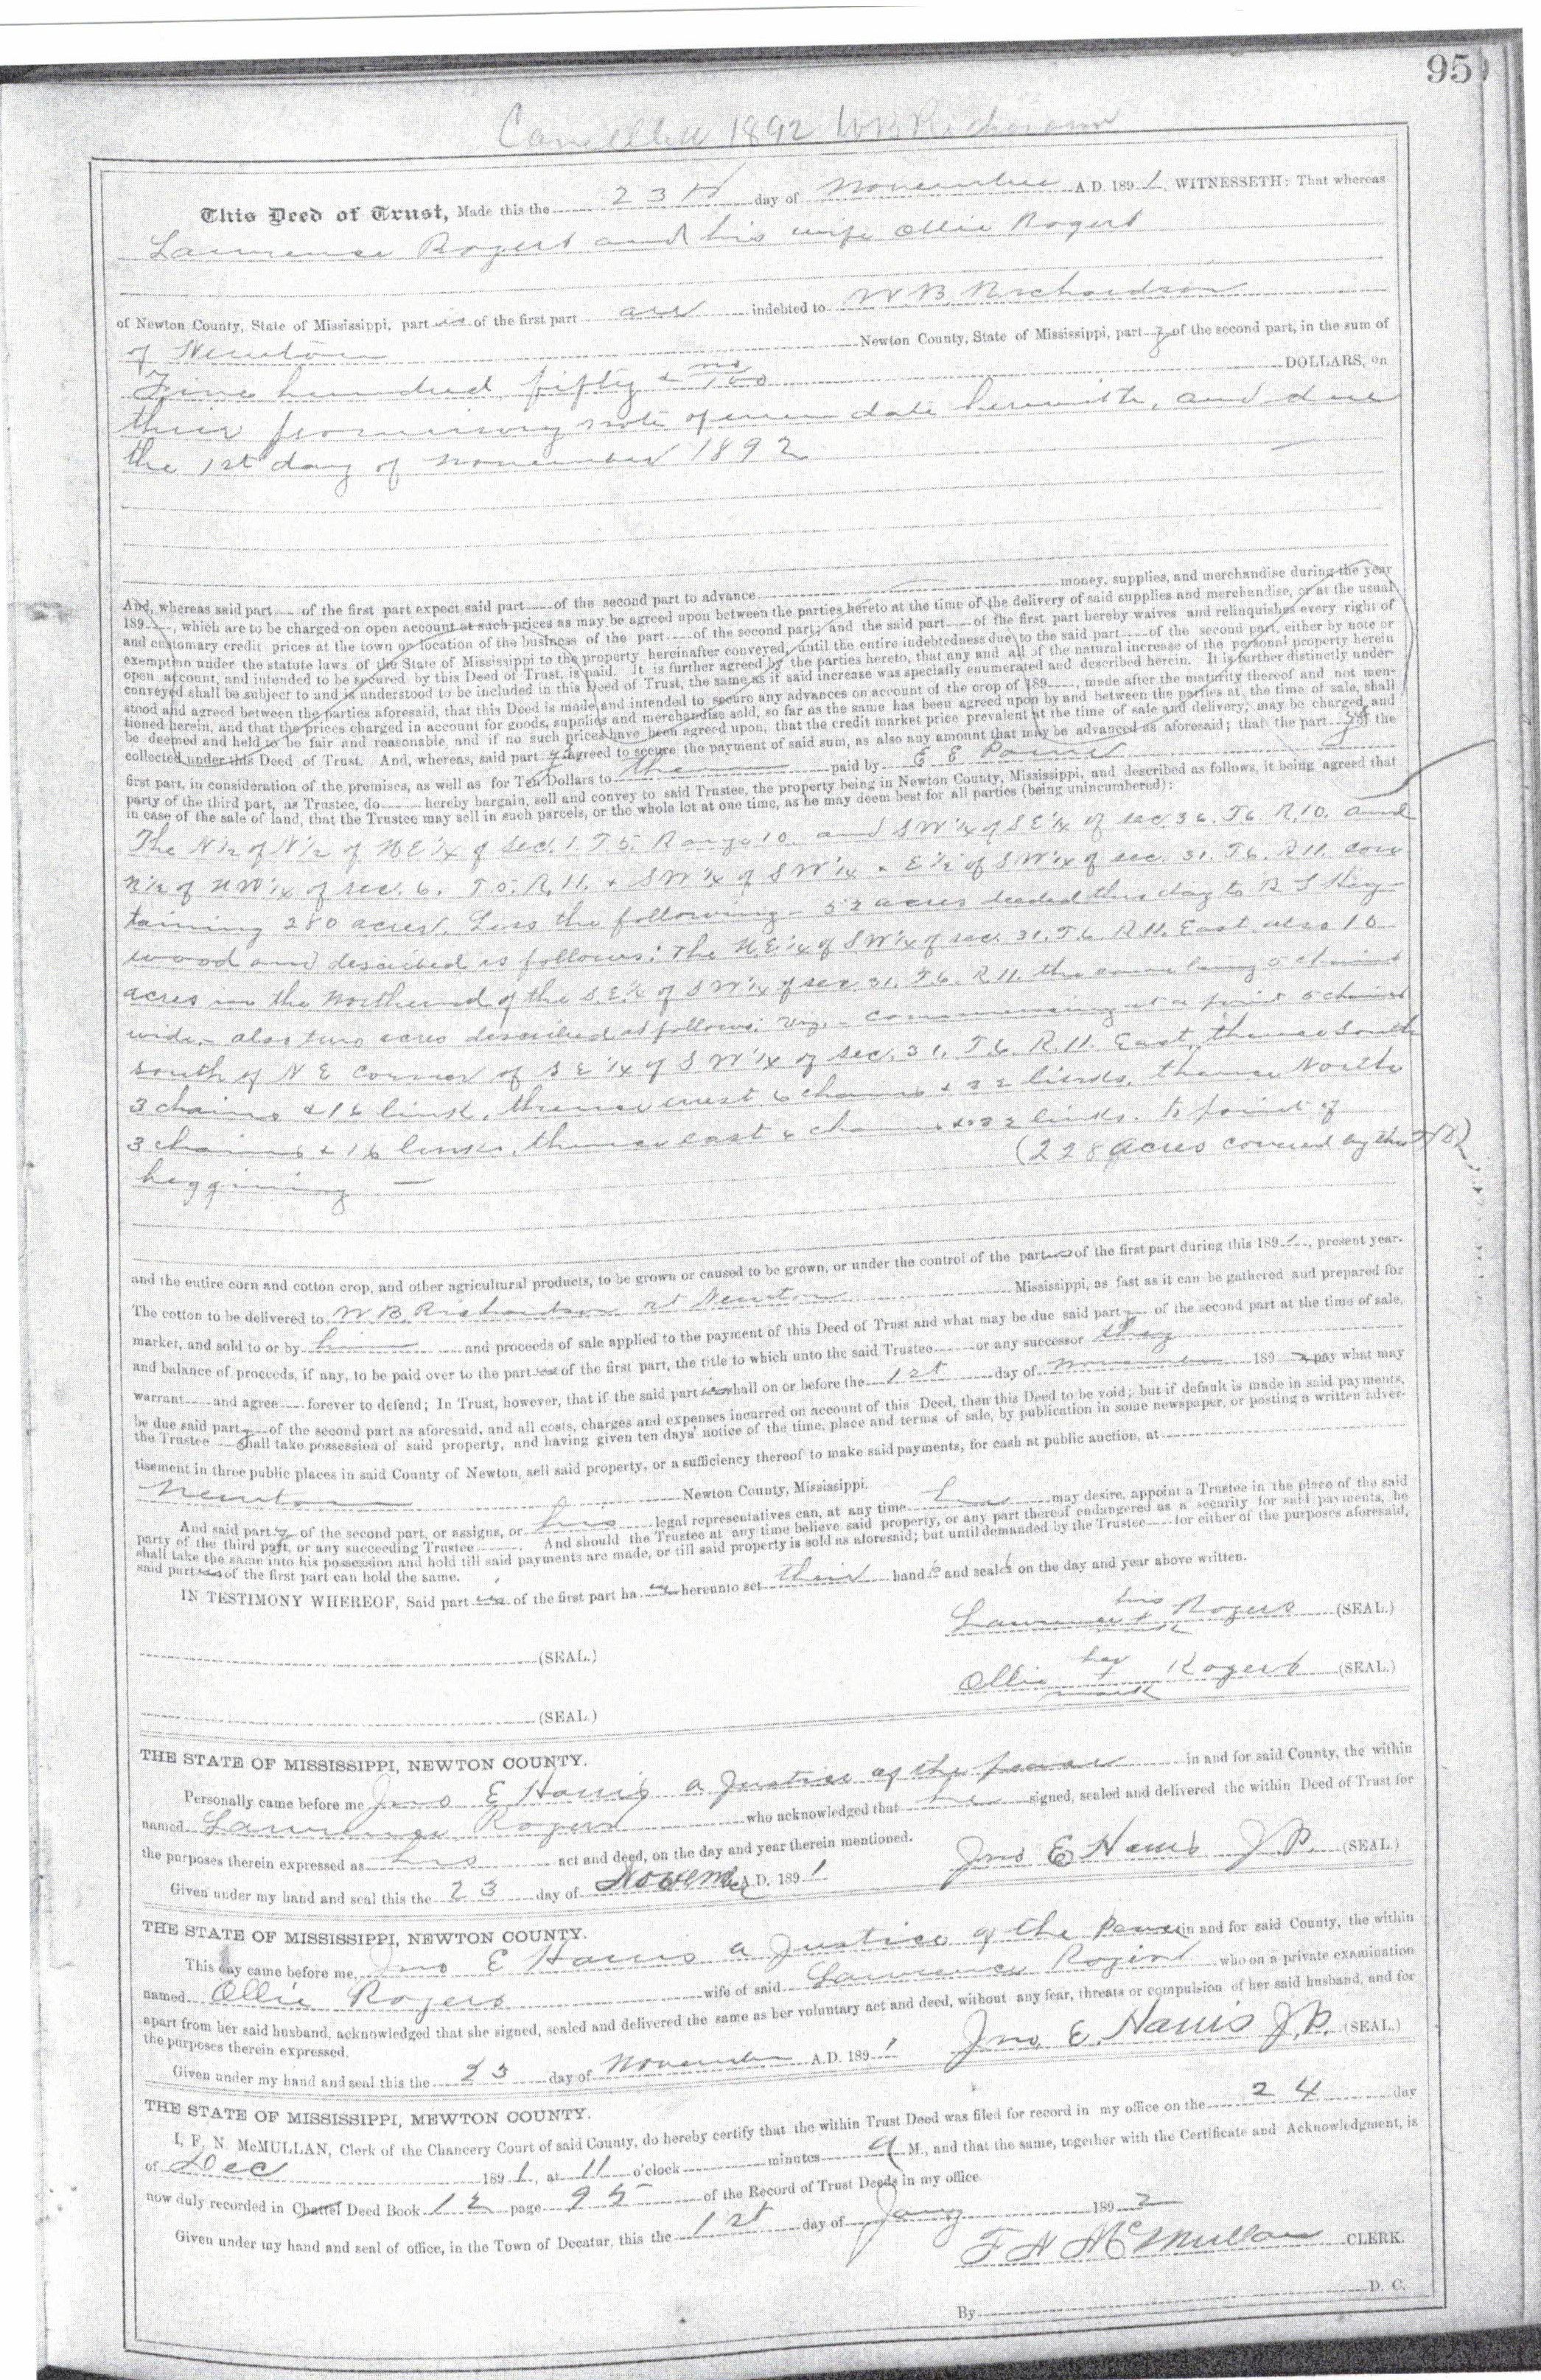 95
Cancelled 1892 WB Richardson
This Deed of Trust, Made this the 23rd day of November A.D. 1891, WITNESSETH: That whereas
Lawrence Rogers and his wife Ollie Rogers
of Newton County, State of Mississippi, parties of the first part are indebted to W. B. Richardson
of Newton Newton County, State of Mississippi, party of the second part, in the sum of
hundred fifty & no/100 DOLLARS, on
their promissory note of even date herewith, and due
the 1st day of November 1892
And, whereas said part of the first part expect said part of the second part to advance money, supplies, and merchandise during the year
189 , which are to be charged on open account at such prices as may be agreed upon between the parties hereto at the time of the delivery of said supplies and merchandise, or at the usual
and customary credit prices at the town or location of the business of the part of the second part; and the said part of the first part hereby waives and relinquishes every right of
exemption under the statute laws of the State of Mississippi to the property hereinafter conveyed, until the entire indebtedness due to the said part of the second part, either by note or
open account, and intended to be secured by this Deed of Trust, is paid. It is further agreed by the parties hereto, that any and all of the natural increase of the personal property herein
conveyed shall be subject to and is understood to be included in this Deed of Trust, the same as if said increase was specially enumerated and described herein. It is further distinctly under-
stood and agreed between the parties aforesaid, that this Deed is made and intended to secure any advances on account of the crop of 189 , made after the maturity thereof and not men-
tioned herein, and that the prices charged in account for goods, supplies and merchandise sold, so far as the same has been agreed upon by and between the parties at the time of sale, shall
be deemed and held to be fair and reasonable, and if no such prices have been agreed upon, that the credit market price prevalent at the time of sale and delivery, may be charged and
collected under this Deed of Trust. And, whereas, said part agreed to secure the payment of said sum, as also any amount that may be advanced as aforesaid; that the part of the
first part, in consideration of the premises, as well as for Ten Dollars to them paid by E E
party of the third part, as Trustee, do hereby bargain, sell and convey to said Trustee, the property being in Newton County, Mississippi, and described as follows, it being agreed that
in case of the sale of land, that the Trustee may sell in such parcels, or the whole lot at one time, as he may deem best for all parties (being unincumbered):
The N½ of N½ of NE¼ of Sec. 1. T.5. Range 10. and SW¼ of SE¼ of sec. 36. T6. R.10. and
N½ of NW¼ of sec. 6. T.5. R.11. & SW¼ of SW¼ & E½ of SW¼ of sec. 31. T6. R11. con
taining 280 acres. Less the following - 52 acres deeded this day to R S Hay-
wood and described as follows: The NE¼ of SW¼ of sec. 31. T6. R11. East. also 10
acres in the North end of the S.E.¼ of SW¼ of sec. 31. T6. R.11. the same being 5 chains
wide - also two acres described as follows: viz. - commencing at a point 5 chains
south of NE corner of SE¼ of SW¼ of sec. 31. T6. R.11. East, thence South
3 chains & 16 links, thence west 6 chains & 32 links, thence North
3 chains & 16 links, thence east 6 chains & 32 links. to point of
beggining — (228 acres covered by this T/D)
and the entire corn and cotton crop, and other agricultural products, to be grown or caused to be grown, or under the control of the parties of the first part during this 1891, present year.
The cotton to be delivered to W B. Richardson at Newton Mississippi, as fast as it can be gathered and prepared for
market, and sold to or by him and proceeds of sale applied to the payment of this Deed of Trust and what may be due said party of the second part at the time of sale,
and balance of proceeds, if any, to be paid over to the parties of the first part, the title to which unto the said Trustee or any successor they
warrant and agree forever to defend; In Trust, however, that if the said parties shall on or before the 1st day of November 1892 pay what may
be due said party of the second part as aforesaid, and all costs, charges and expenses incurred on account of this Deed, then this Deed to be void; but if default is made in said payments,
the Trustee shall take possession of said property, and having given ten days' notice of the time, place and terms of sale, by publication in some newspaper, or posting a written adver-
tisement in three public places in said County of Newton, sell said property, or a sufficiency thereof to make said payments, for cash at public auction, at
Newton Newton County, Mississippi.
And said party of the second part, or assigns, or his legal representatives can, at any time he may desire, appoint a Trustee in the place of the said
party of the third part, or any succeeding Trustee . And should the Trustee at any time believe said property, or any part thereof endangered as a security for said payments, he
shall take the same into his possession and hold till said payments are made, or till said property is sold as aforesaid; but until demanded by the Trustee for either of the purposes aforesaid,
said parties of the first part can hold the same.
IN TESTIMONY WHEREOF, Said parties of the first part have hereunto set their hands and seals on the day and year above written.
his
Lawrence x Rogers (SEAL.)
mark
(SEAL.)
her
Ollie x Rogers (SEAL.)
mark
(SEAL.)
THE STATE OF MISSISSIPPI, NEWTON COUNTY.
Personally came before me Jno E Harris a Justice of the peace in and for said County, the within
named Lawrence Rogers who acknowledged that he signed, sealed and delivered the within Deed of Trust for
the purposes therein expressed as his act and deed, on the day and year therein mentioned.
Given under my hand and seal this the 23 day of November A.D. 1891 Jno E Harris J.P. (SEAL.)
THE STATE OF MISSISSIPPI, NEWTON COUNTY.
This day came before me, Jno E Harris a Justice of the Peace in and for said County, the within
named Ollie Rogers wife of said Lawrence Rogers who on a private examination
apart from her said husband, acknowledged that she signed, sealed and delivered the same as her voluntary act and deed, without any fear, threats or compulsion of her said husband, and for
the purposes therein expressed.
Given under my hand and seal this the 23 day of November A.D. 1891 Jno. E. Harris J.P. (SEAL.)
THE STATE OF MISSISSIPPI, MEWTON COUNTY.
I, F. N. McMULLAN, Clerk of the Chancery Court of said County, do hereby certify that the within Trust Deed was filed for record in my office on the 24 day
of Dec 1891, at 11 o'clock minutes a M., and that the same, together with the Certificate and Acknowledgment, is
now duly recorded in Chattel Deed Book 12 page 95 of the Record of Trust Deeds in my office.
Given under my hand and seal of office, in the Town of Decatur, this the 1st day of Jany 1892
F N McMullan CLERK.
By D. C.